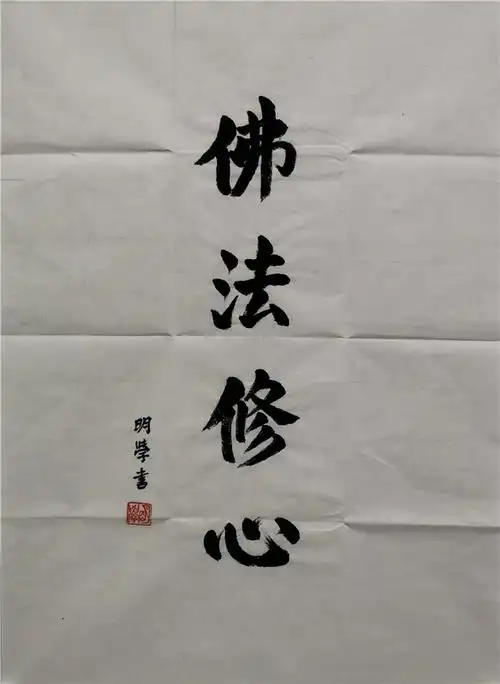 佛法修心
明學書